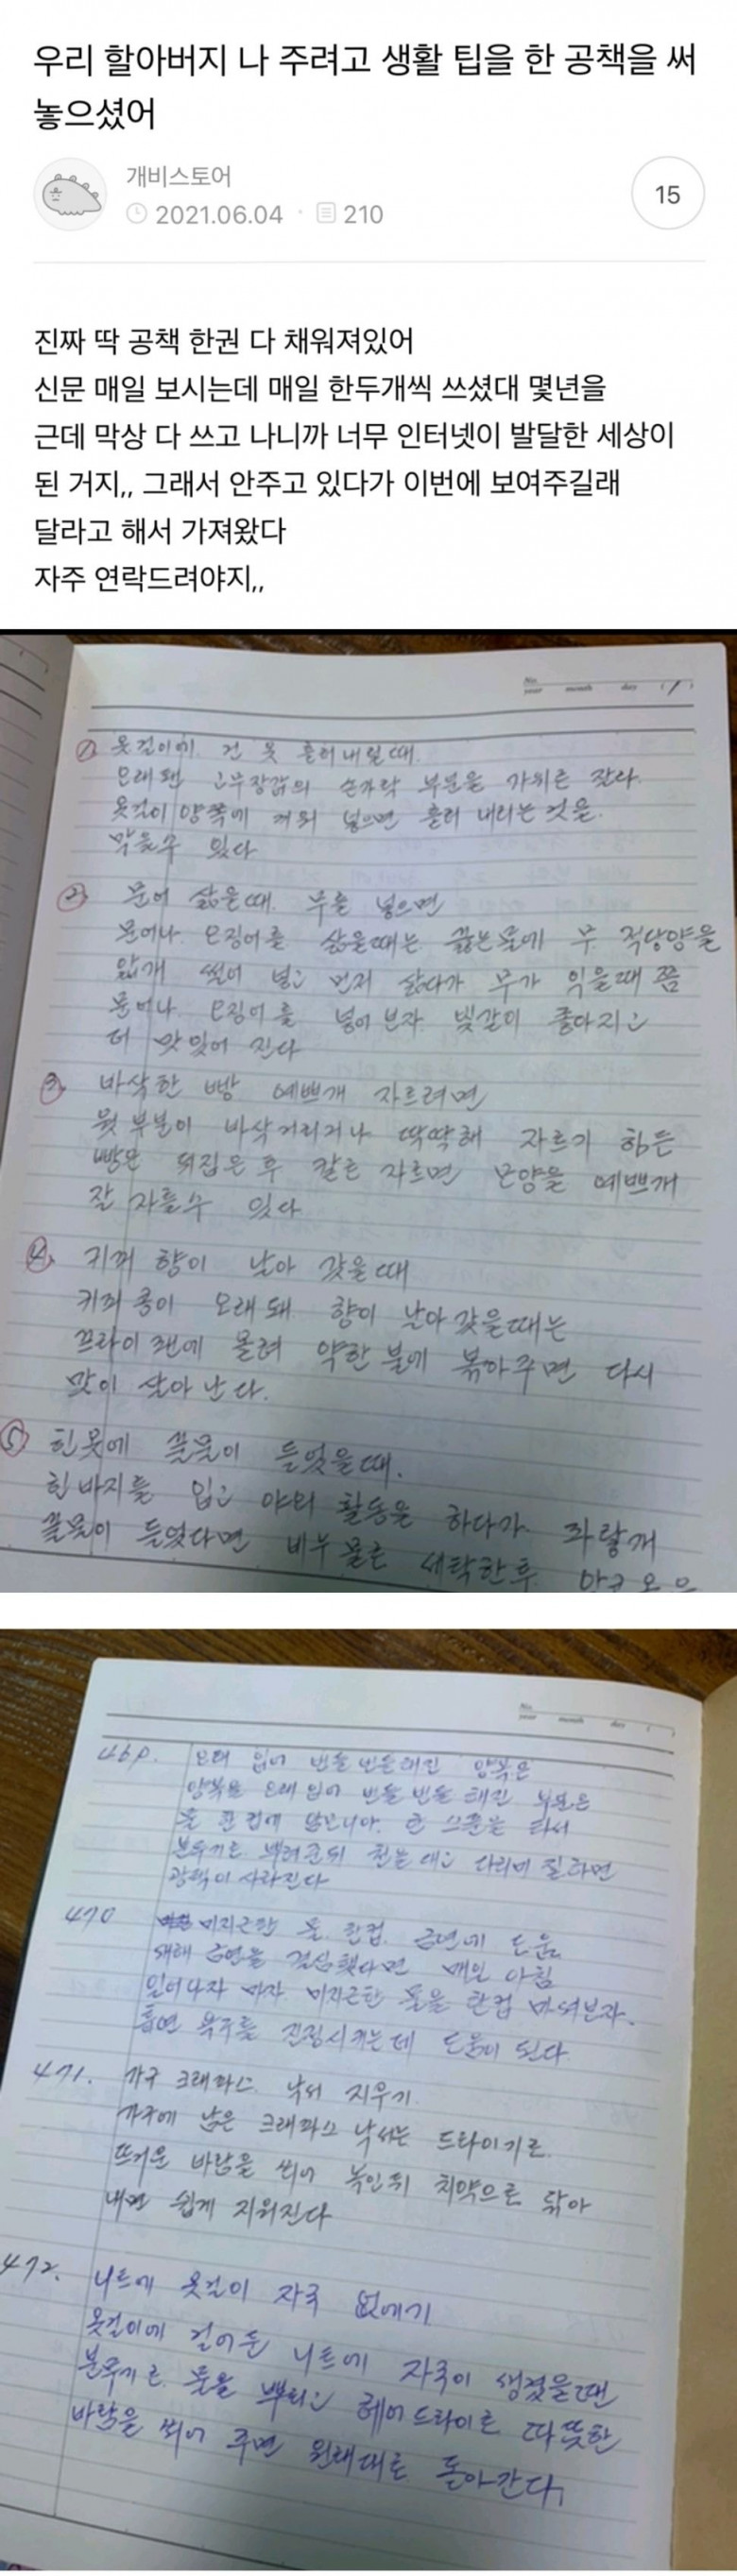 우리 할아버지 나 주려고 생활 팁을 한 공책을 써
놓으셨어
개비스토어
2021.06.04 · 210
15
진짜 딱 공책 한권 다 채워져있어
신문 매일 보시는데 매일 한두개씩 쓰셨대 몇년을
근데 막상 다 쓰고 나니까 너무 인터넷이 발달한 세상이
된 거지,, 그래서 안주고 있다가 이번에 보여주길래
달라고 해서 가져왔다
자주 연락드려야지,,
No.
year month day ( 1 )
① 옷걸이에 건 옷 흘러내릴때.
오래된 고무장갑의 손가락 부분을 가위로 잘라
옷걸이 양쪽에 끼워 넣으면 흘러 내리는 것을
막을수 있다
② 문어 삶을때. 무를 넣으면
문어나 오징어를 삶을때는 끓는물에 무 적당양을
얇개 썰어 넣고 먼저 삶다가 무가 익을때 쯤
문어나 오징어를 넣어보자 빛갈이 좋아지고
더 맛있어 진다
③ 바삭한 빵 예쁘개 자르려면
윗부분이 바삭거리거나 딱딱해 자르기 힘든
빵은 뒤집은 후 칼로 자르면 모양을 예쁘개
잘 자를수 있다
④ 커피 향이 날아 갔을때
커피 콩이 오래돼 향이 날아갔을때는
프라이팬에 올려 약한 불에 볶아주면 다시
맛이 살아 난다.
⑤ 흰옷에 풀물이 들었을때.
흰바지를 입고 야외 활동을 하다가 파랗개
풀물이 들었다면 비누물로 세탁한후
No.
year month day ( )
469. 오래 입어 번들번들해진 양복은
양복을 오래입어 번들번들 해진 부분은
물 한컵에 암모니아. 한 스푼을 타서
분무기로 뿌려준뒤 천을 대고 다리미질하면
광택이 사라진다
470 미지근한 물 한컵. 금연에 도움.
새해 금연을 결심했다면 매일 아침
일어나자 마자 미지근한 물을 한컵 마셔보자.
흡연 욕구를 진정시키는데 도움이 된다
471. 가구 크래파스 낙서 지우기
가구에 남은 크래파스 낙서는 드라이기로
뜨거운 바람을 쐬어 녹인뒤 치약으로 닦아
내면 쉽게 지워진다
472. 니트에 옷걸이 자국 없애기
옷걸이에 걸어둔 니트에 자국이 생겼을땐
분무기로 물을 뿌리고 헤어드라이로 따뜻한
바람을 쐬어 주면 원래대로 돌아간다